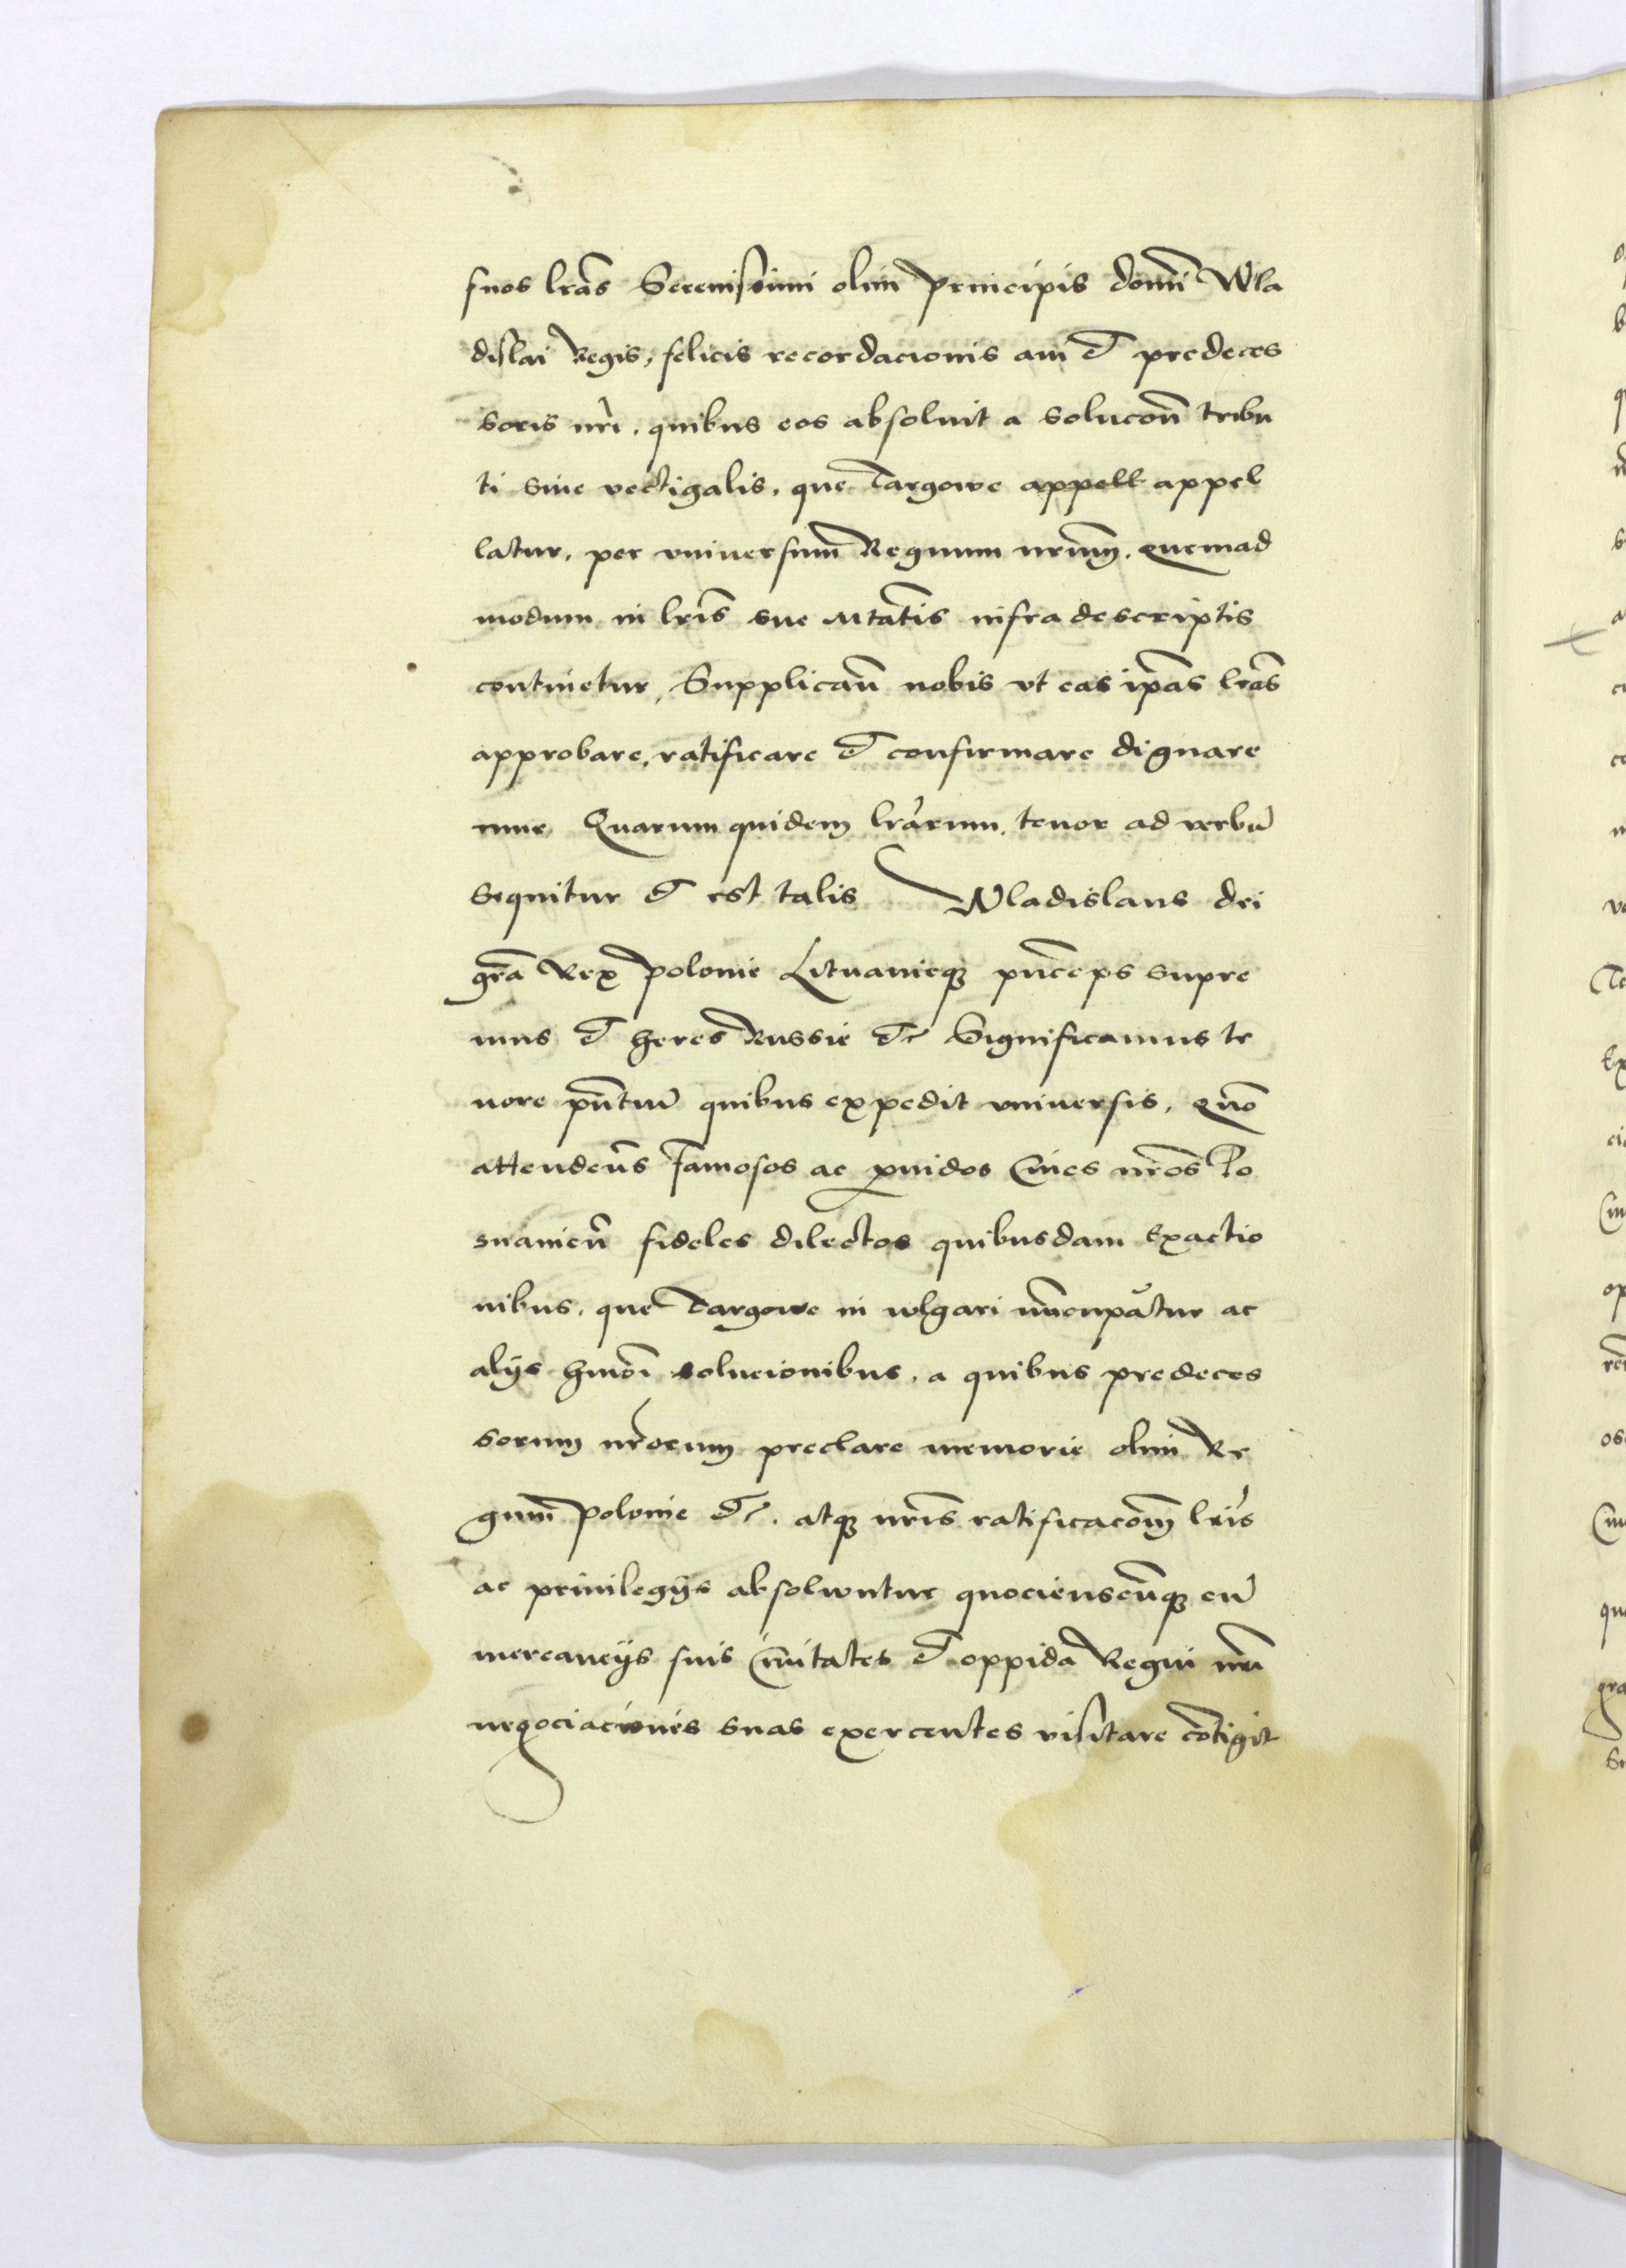 suos lras Serenissimi olim Principis domini Wla
dislai Regis, felicis recordacionis aui et predeces
soris nri, quibus eos absoluit a solucon tribu
ti siue vectigalis, que Targowe appell appel
latur, per vniuersum Regnum nrum, quemad
modum in lris sue Mtatis infradescriptis
continetur, Supplican nobis vt eas ipas lras
approbare, ratificare et confirmare dignare
mur Quarum quidem lrarum, tenor ad verbu
sequitur et est talis Wladislaus dei
gra Rex Polonie Lituanieq princeps supre
mus et heres Russie etc Significamus te
nore pntiu quibus expedit vniuersis, quo
attendens famosos ac prouidos Ciues nros Po
snanien fideles dilectos quibusdam Exactio
nibus, que Targowe in wlgari nuncupatur ac
alijs hmoi solucionibus, a quibus predeces
sorum nrorum preclare memorie olim Re
gum Polonie etc. atq nris ratificacom lris
ac priuilegijs absoluuntur quociensCunq cu
mercancijs suis Ciuitates et oppida Regni nri
negociaciones suas exercentes visitare cotigit